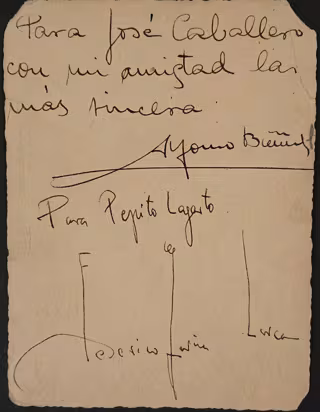 Para José Caballero
con mi amistad la
más sincera.
Para Pepito Lagarto.
Federico García Lorca